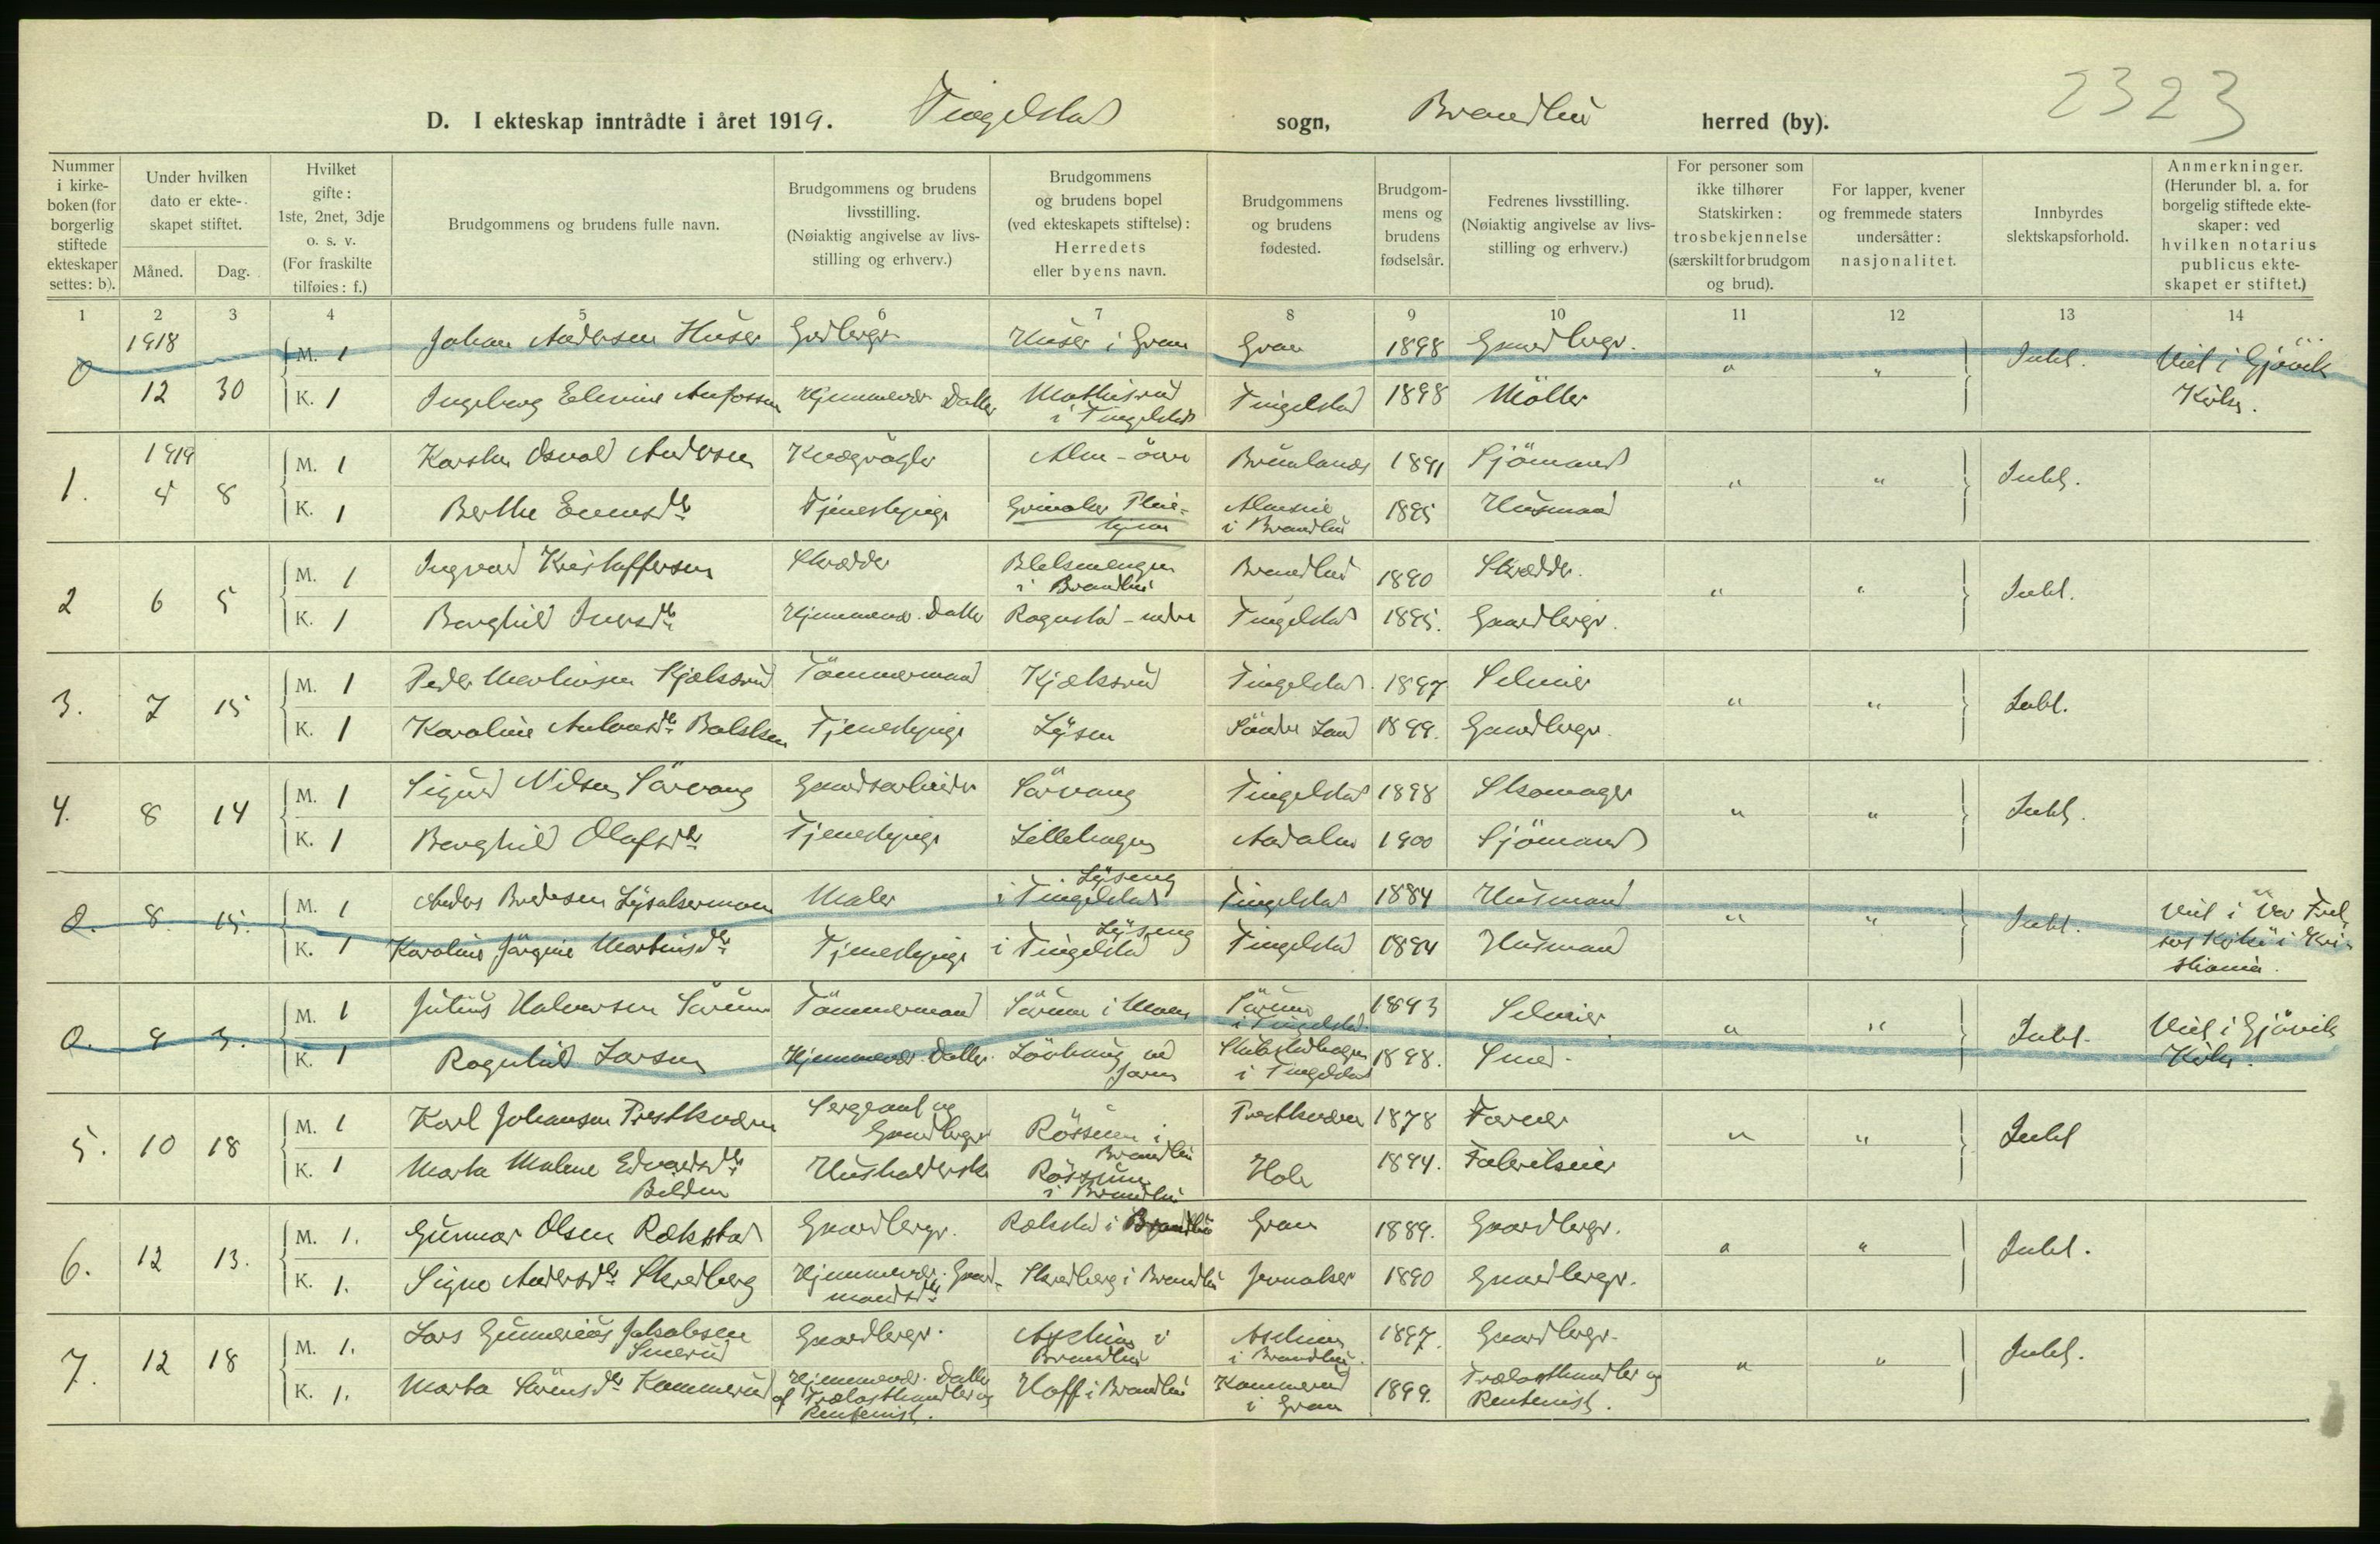 2323
D. I ekteskap inntrådte i året 1919. Tingelstad sogn, Brandbu herred (by).
Nummer i kirkeboken (for borgerlig stiftede ekteskaper settes: b).
Under hvilken dato er ekteskapet stiftet.
Måned. Dag.
Hvilket gifte: 1ste, 2net, 3dje o. s. v. (For fraskilte tilføies: f.)
Brudgommens og brudens fulle navn.
Brudgommens og brudens livsstilling. (Nøiaktig angivelse av livsstilling og erhverv.)
Brudgommens og brudens bopel (ved ekteskapets stiftelse): Herredets eller byens navn.
Brudgommens og brudens fødested.
Brudgommens og brudens fødselsår.
Fedrenes livsstilling. (Nøiaktig angivelse av livsstilling og erhverv.)
For personer som ikke tilhører Statskirken: trosbekjennelse (særskilt for brudgom og brud).
For lapper, kvener og fremmede staters undersåtter: nasjonalitet.
Innbyrdes slektskapsforhold.
Anmerkninger. (Herunder bl. a. for borgelig stiftede ekteskaper: ved hvilken notarius publicus ekteskapet er stiftet.)
1 2 3 4 5 6 7 8 9 10 11 12 13 14
0 1918 M. 1 Johan Andersen Huser Grdbergr. Huser i Gran Gran 1898 Gaardbrgr. " " Intet. Viet i Gjøvik
12 30 K. 1 Ingeborg Elvine Hjemmevær. Datter i Tingelstad Tingelstad 1898 Möller Kirke.
1. 1919 M. 1 Karsten Osvald Andersen Alm-övre Brunlanes 1891 Sjömand " " Intet.
4 8 K. 1 Berthe Evensdtr Tjenestepige Grinaker Pleiehjem i Brandbu 1895 Husmand
2 6 5 M. 1 Ingvard Kristoffersen Skrædder i Brandbu Brandbu 1890 Skrædder. " " Intet.
K. 1 Borghild Iversdtr Hjemmevær. Datter Rognstad-nedre Tingelstad 1895. Gaardbrgr.
3. 7 15 M. 1 Peder Martinsen Kjælsrud Tömmermand Kjælsrud Tingelstad 1897 Selveier " " Intet.
K. 1 Karoline Antonsdtr Tjenestepige Lysen Söndre Land 1899. Gaardbrgr.
4. 8 14 M. 1 Sigurd Nilsen Sörvang Gaardsarbeider Sörvang Tingelstad 1898 Skomager " " Intet.
K. 1 Borghild Olafsdtr Tjenestepige Lillehagen Aadalen 1900 Sjömand
0. 8. 15. M. 1 Anders Bredesen Maler Lyseng i Tingelstad Tingelstad 1884 Husmand " " Intet. Viet i Vor Frel
K. 1 Karoline Jörgine Martinsdtr Tjenestepige Lyseng i Tingelstad Tingelstad 1894 Husmand sers Kirke i Kristiania.
0. 9 3. M. 1 Julius Halvorsen Sörum Tömmermand Sörum i Moen Sörum i Tingelstad. 1893 Selveier " " Intet. Viet i Gjövik
K. 1 Ragnhild Larsen Hjemmevær. Datter. Lövhaug ved Jaren i Tingelstad 1898. Smed. Kirke.
5. 10 18 M. 1 Karl Johansen Prestkværn Sergeant og Gaardbrgr Rössum i Brandbu Prestkværn 1878 Farver " " Intet
K. 1 Marta Malene Edvardsdtr Belden Husholderske Rössum i Brandbu Hole 1894. Fabrikeier
6. 12 13. M. 1. Gunnar Olsen Rækstad Gaardbergr. Rækstad i Brandbu Gran 1889. Gaardbrgr. " " Intet.
K. 1. Signe Andersdtr Skredberg Hjemmevær. Gaardmandsdtr Skredberg i Brandbu Jevnaker 1890 Gaardbergr.
7. 12 18 M. 1. Lars Gunnerius Jakobsen Smerud Gaardbergr. Askim i Brandbu Askim i Brandbu. 1897. Gaardbrgr. " " Intet.
K. 1. Marta Sörensdtr Kammerud Hjemmevær. Datter af Trælasthandler og Rentenist. Hoff i Brandbu Kammerud i Gran 1899. Trælasthandler og Rentenist.